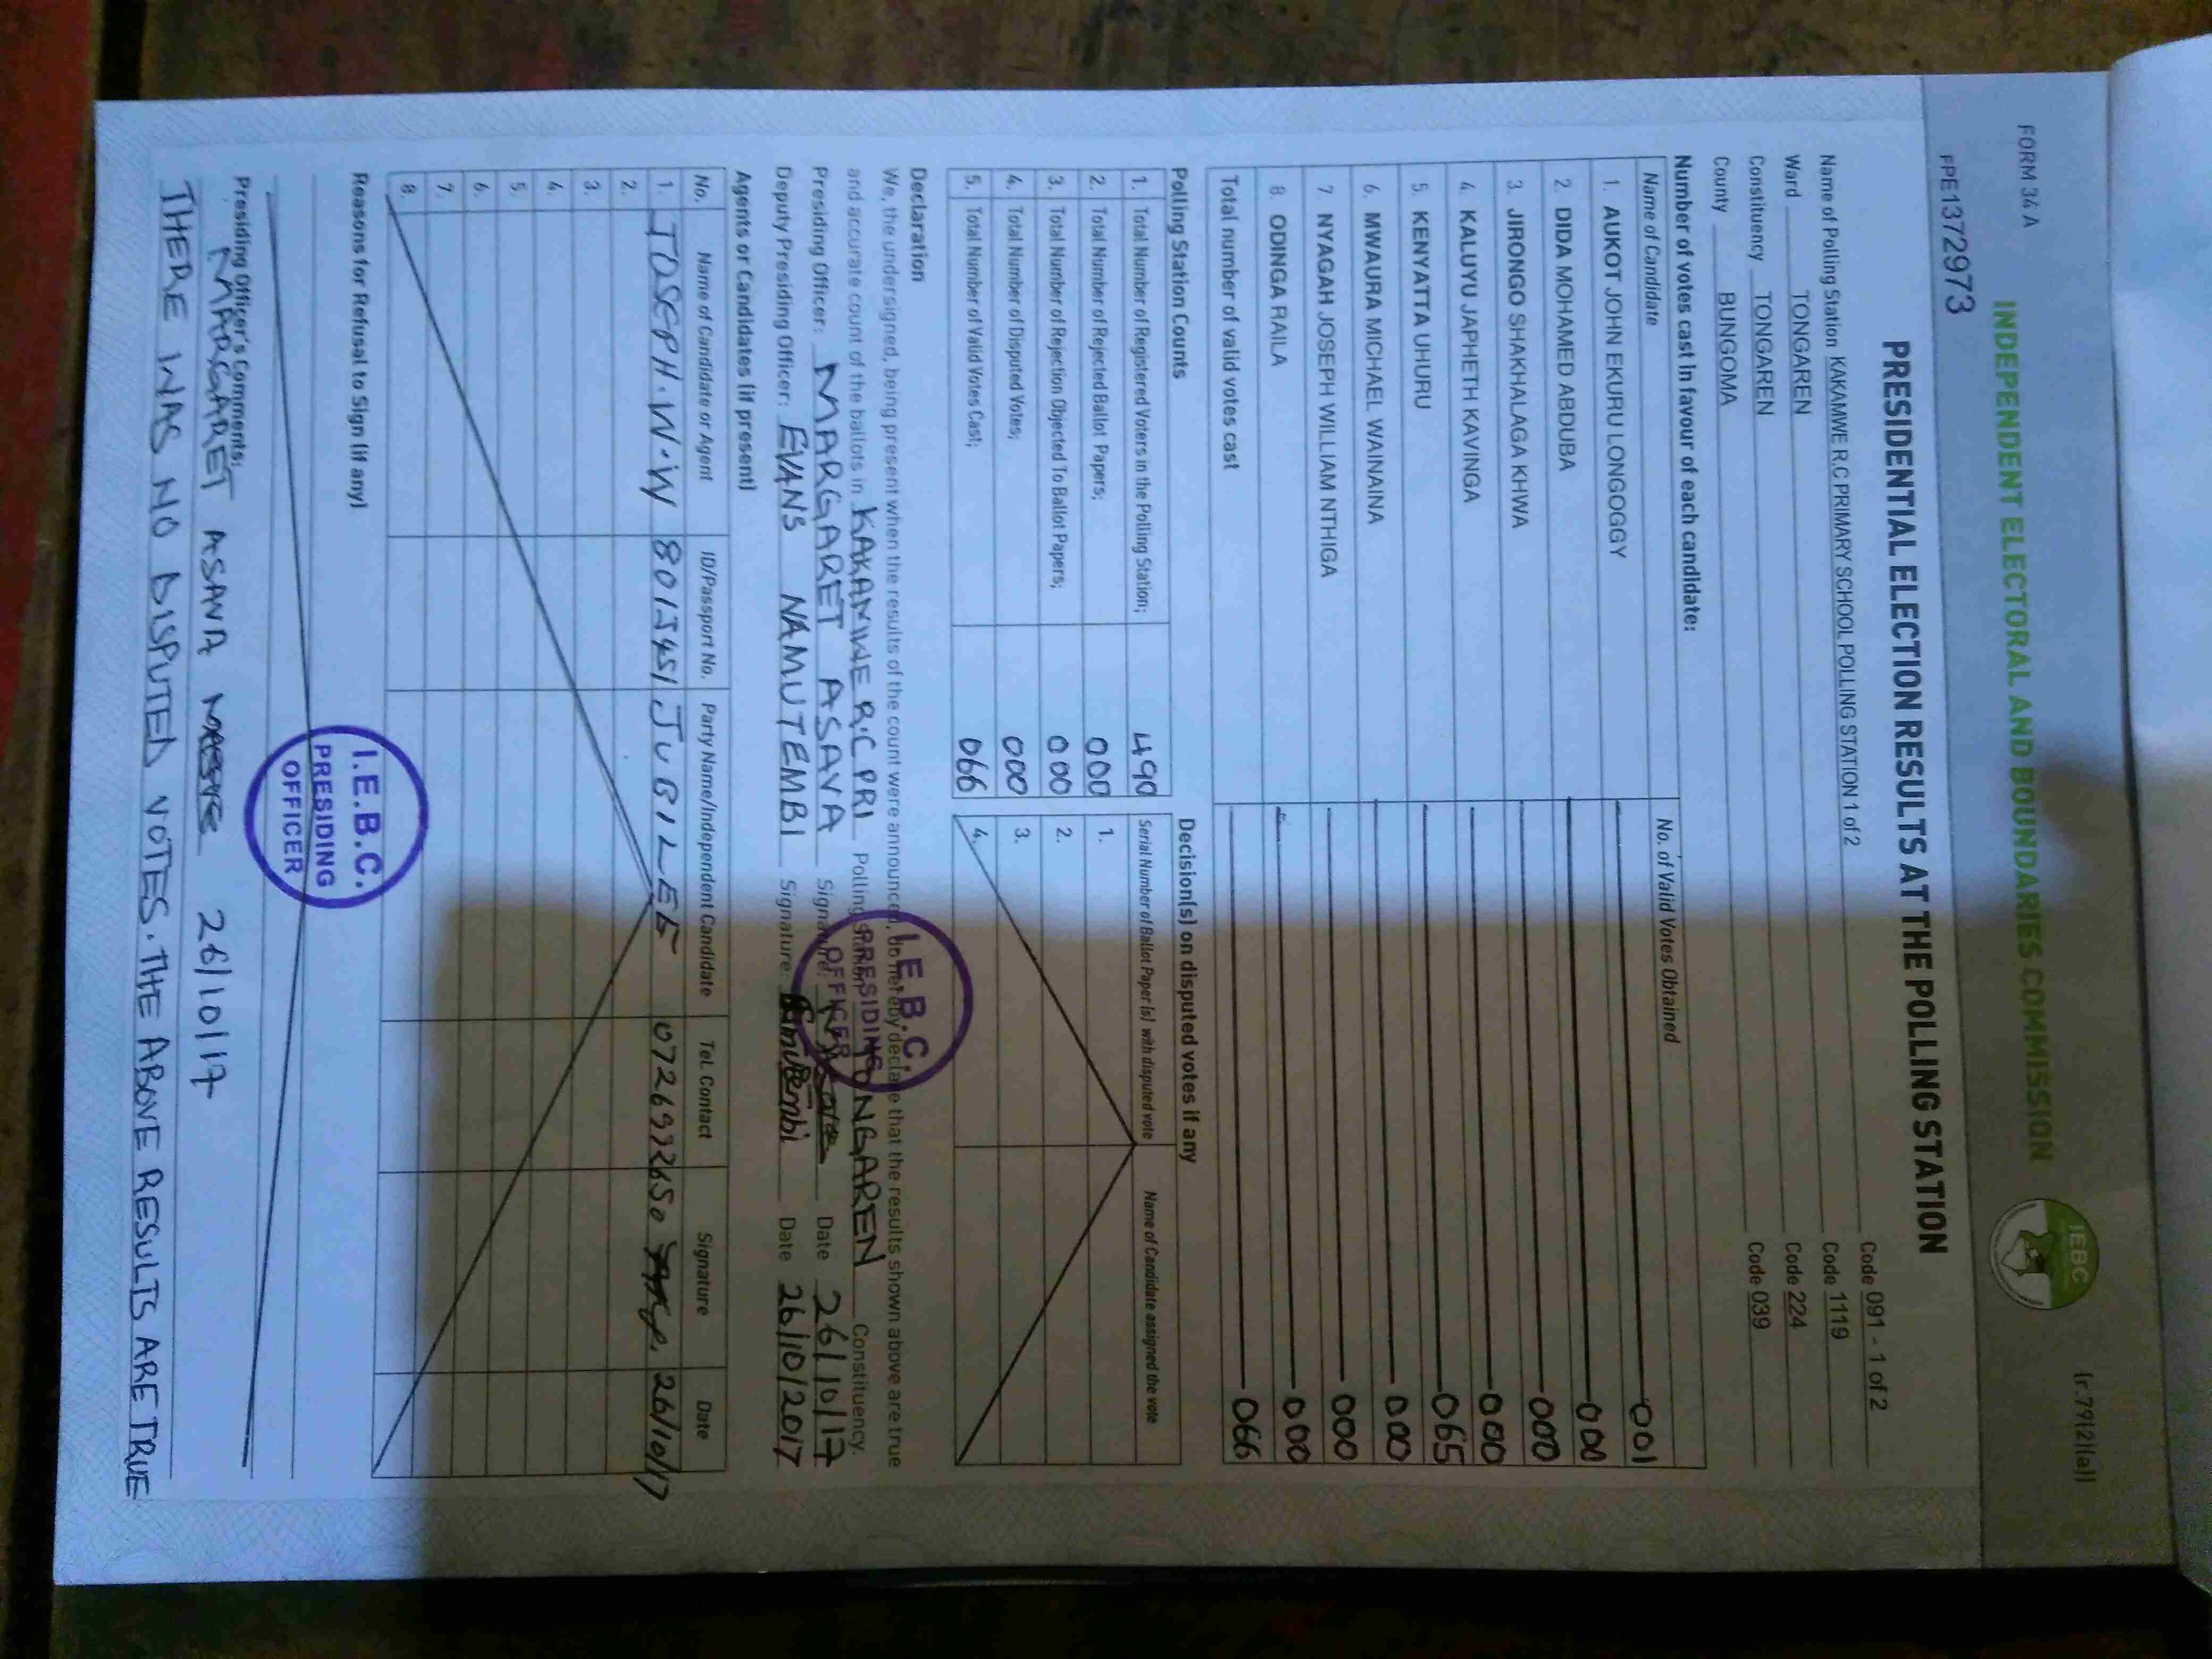 FORM 34 A
(r.79(2)(a))
INDEPENDENT ELECTORAL AND BOUNDARIES COMMISSION
IEBC
PPE1372973
PRESIDENTIAL ELECTION RESULTS AT THE POLLING STATION
Name of Polling Station KAKAMWE R.C PRIMARY SCHOOL POLLING STATION 1 of 2 Code 091 - 1 of 2
Ward TONGAREN Code 1119
Constituency TONGAREN Code 224
County BUNGOMA Code 039
Number of votes cast in favour of each candidate:
Name of Candidate No. of Valid Votes Obtained
1. AUKOT JOHN EKURU LONGOGGY 001
2. DIDA MOHAMED ABDUBA 000
3. JIRONGO SHAKHALAGA KHWA 000
4. KALUYU JAPHETH KAVINGA 000
5. KENYATTA UHURU 065
6. MWAURA MICHAEL WAINAINA 000
7. NYAGAH JOSEPH WILLIAM NTHIGA 000
8. ODINGA RAILA 000
Total number of valid votes cast 066
Polling Station Counts
1. Total Number of Registered Voters in the Polling Station; 490
2. Total Number of Rejected Ballot Papers; 000
3. Total Number of Rejection Objected To Ballot Papers; 000
4. Total Number of Disputed Votes; 000
5. Total Number of Valid Votes Cast; 066
Decision(s) on disputed votes if any
Serial Number of Ballot Paper (s) with disputed vote Name of Candidate assigned the vote
1.
2.
3.
4.
Declaration
We, the undersigned, being present when the results of the count were announced, do hereby declare that the results shown above are true
and accurate count of the ballots in KAKAMWE R.C PRI Polling Station TONGAREN Constituency.
Presiding Officer: MARGARET ASAVA Signature: Date 26/10/17
Deputy Presiding Officer: EVANS NAMUTEMBI Signature: Date 26/10/2017
I.E.B.C.
PRESIDING
OFFICER
Agents or Candidates (if present)
No. Name of Candidate or Agent ID/Passport No. Party Name/Independent Candidate Tel. Contact Signature Date
1. JOSEPH.W.W JUBILEE 26/10/17
2.
3.
4.
5.
6.
7.
8.
Reasons for Refusal to Sign (if any)
I.E.B.C.
PRESIDING
OFFICER
Presiding Officer's Comments:
MARGARET ASAVA 26/10/17
THERE WAS NO DISPUTED VOTES. THE ABOVE RESULTS ARE TRUE